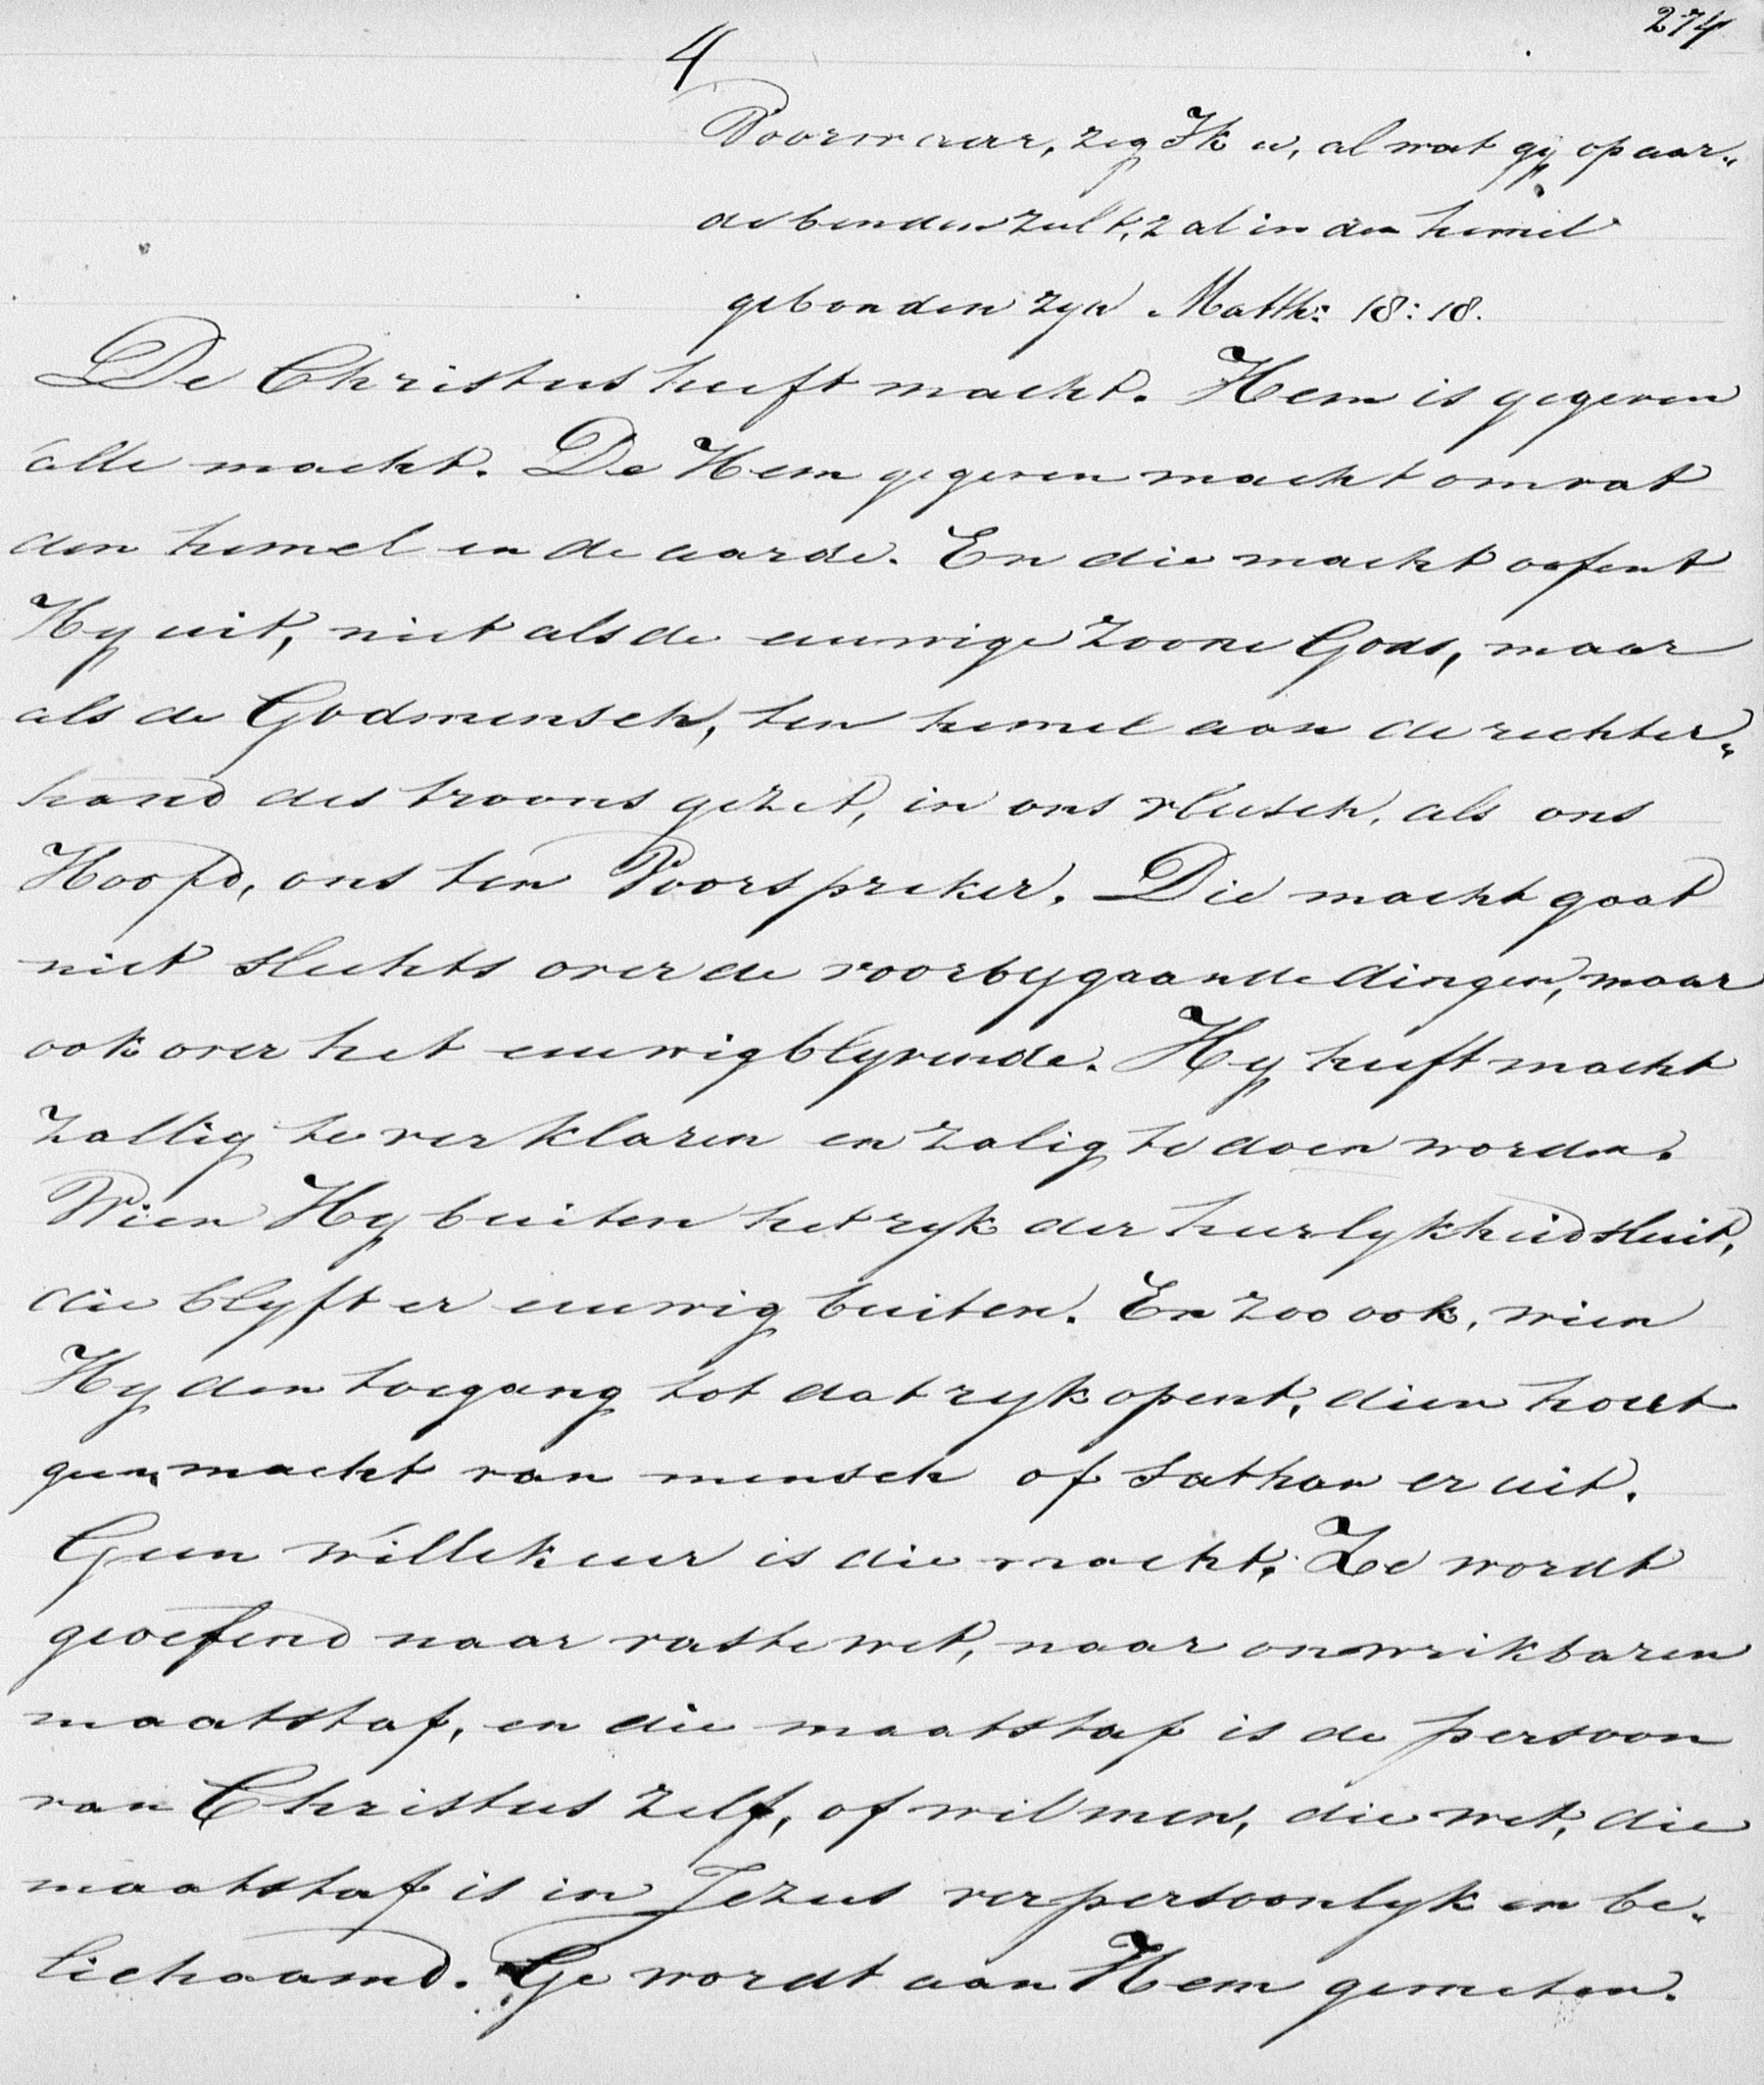 274
4
Voorwaar, zeg Ik u, al wat gij op aar„
de binden zult, zal in den hemel
gebonden zyn Matth: 18:18.
De Christus heeft macht. Hem is gegeven
alle macht. De Hem gegeven macht omvat
den hemel en de aarde. En die macht oefent
Hy uit, niet als de eeuwige Zoone Gods, maar
als de Godmensch, ten hemel aan de rechter„
hand des troons gezet, in ons vleesch, als ons
Hoofd, ons ten Voorspreker. Die macht gaat
niet slechts over de voorbygaande dingen, maar
ook over het eeuwigblyvende. Hy heeft macht
zallig te verklaren en zalig te doen worden.
Wien Hy buiten het ryk der heerlykheid sluit,
die blyft er eeuwig buiten. En zoo ook, wien
Hy den toegang tot dat ryk opent, dien houdt
geen macht van mensch of Sathan er uit.
Geen willekeur is die macht. Ze wordt
geoefend naar vaste wet, naar onwrikbaren
maatstaf, en die maatstaf is de persoon
van Christus zelf, of wil men, die wet, die
maatstaf is in Jezus verpersoonlyk en be„
lichaamd. Ge wordt aan Hem gemeten.